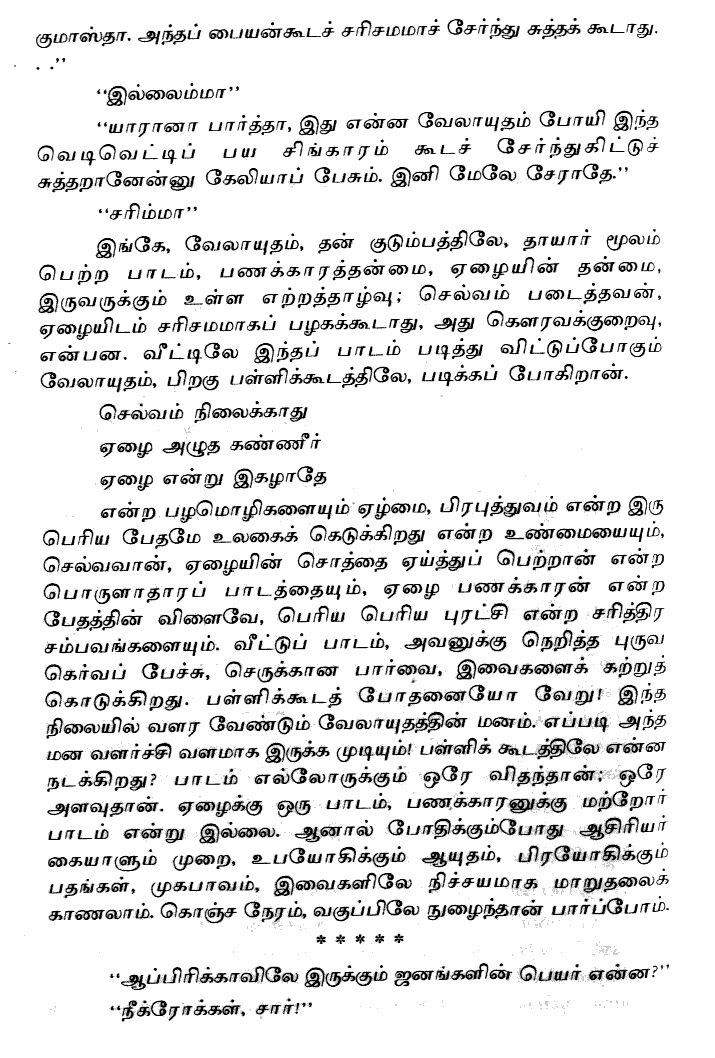 குமாஸ்தா. அந்தப் பையன்கூடச் சரிசமமாச் சேர்ந்து சுத்தக் கூடாது.
. .”
“இல்லைம்மா”
“யாரானா பார்த்தா, இது என்ன வேலாயுதம் போயி இந்த
வெடிவெட்டிப் பய சிங்காரம் கூடச் சேர்ந்துகிட்டுச்
சுத்தறானேன்னு கேலியாப் பேசும். இனி மேலே சேராதே.”
“சரிம்மா”
இங்கே, வேலாயுதம், தன் குடும்பத்திலே, தாயார் மூலம்
பெற்ற பாடம், பணக்காரத்தன்மை, ஏழையின் தன்மை,
இருவருக்கும் உள்ள எற்றத்தாழ்வு; செல்வம் படைத்தவன்,
ஏழையிடம் சரிசமமாகப் பழகக்கூடாது, அது கௌரவக்குறைவு,
என்பன. வீட்டிலே இந்தப் பாடம் படித்து விட்டுப்போகும்
வேலாயுதம், பிறகு பள்ளிக்கூடத்திலே, படிக்கப் போகிறான்.
செல்வம் நிலைக்காது
ஏழை அழுத கண்ணீர்
ஏழை என்று இகழாதே
என்ற பழமொழிகளையும் ஏழ்மை, பிரபுத்துவம் என்ற இரு
பெரிய பேதமே உலகைக் கெடுக்கிறது என்ற உண்மையையும்,
செல்வவான், ஏழையின் சொத்தை ஏய்த்துப் பெற்றான் என்ற
பொருளாதாரப் பாடத்தையும், ஏழை பணக்காரன் என்ற
பேதத்தின் விளைவே, பெரிய பெரிய புரட்சி என்ற சரித்திர
சம்பவங்களையும். வீட்டுப் பாடம், அவனுக்கு நெறித்த புருவ
கெர்வப் பேச்சு, செருக்கான பார்வை, இவைகளைக் கற்றுத்
கொடுக்கிறது. பள்ளிக்கூடத் போதனையோ வேறு! இந்த
நிலையில் வளர வேண்டும் வேலாயுதத்தின் மனம். எப்படி அந்த
மன வளர்ச்சி வளமாக இருக்க முடியும்! பள்ளிக் கூடத்திலே என்ன
நடக்கிறது? பாடம் எல்லோருக்கும் ஒரே விதந்தான்; ஒரே
அளவுதான். ஏழைக்கு ஒரு பாடம், பணக்காரனுக்கு மற்றோர்
பாடம் என்று இல்லை. ஆனால் போதிக்கும்போது ஆசிரியர்
கையாளும் முறை, உபயோகிக்கும் ஆயுதம், பிரயோகிக்கும்
பதங்கள், முகபாவம், இவைகளிலே நிச்சயமாக மாறுதலைக்
காணலாம். கொஞ்ச நேரம், வகுப்பிலே நுழைந்தான் பார்ப்போம்.
* * * * *
“ஆப்பிரிக்காவிலே இருக்கும் ஜனங்களின் பெயர் என்ன?”
“நீக்ரோக்கள், சார்!”